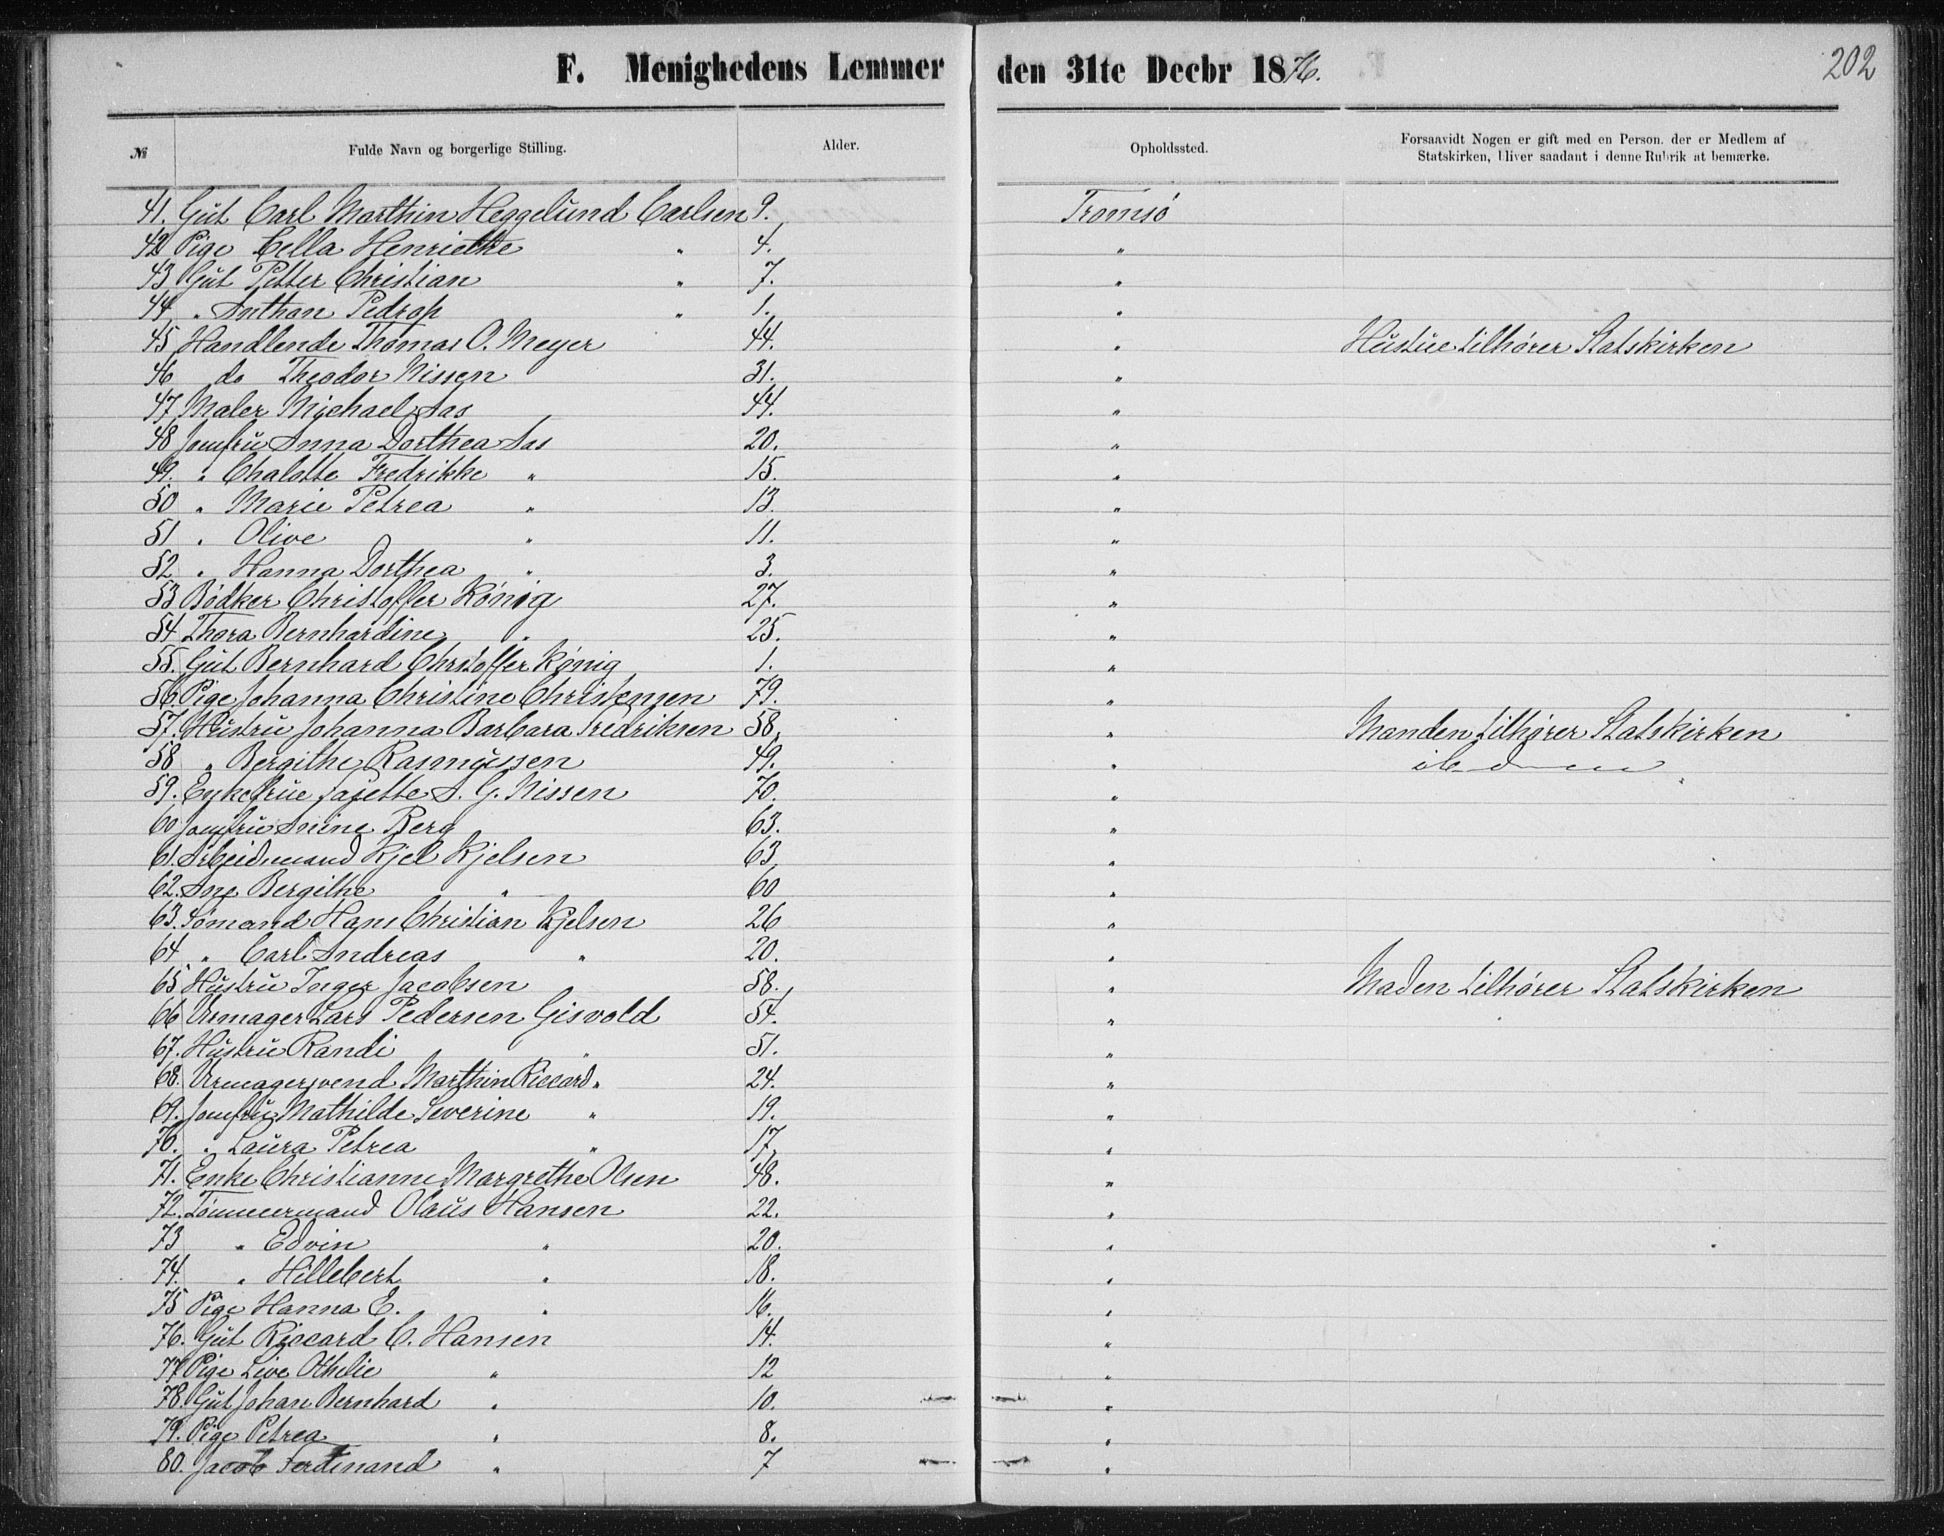 202
F. Menighedens Lemmer den 31te Decbr 1876.
№ Fulde Navn og borgerlige Stilling. Alder. Opholdssted. Forsaavidt Nogen er gift med en Person, der er Medlem af
Statskirken, bliver saadant i denne Rubrik at bemærke.
41. Gut Carl Marthin Heggelund Carlsen 9. Tromsø
42 Pige Cella Henriette " 4. "
43 Gut Petter Christian " 7. "
44 " Anthon Pedrop " 1. "
45 Handlende Thomas O. Meyer 44. " Hustue tilhører Statskirken
46 do Theodor Nissen 31. "
47 Maler Mychael Aas 44. "
48 Jomfru Anna Dorthea Aas 20. "
49. " Chalotte Fredrikke " 15. "
50 " Marie Petrea " 13. "
51 " Olive " 11. "
52 " Hanna Dorthea " 3. "
53 Bødker Christoffer König 27. "
54 Thora Bernhardine " 25. "
55. Gut Bernhard Christoffer König 1. "
56. Pige Johanna Christine Christensen 79. "
57. Hustru Johanna Barbara Fredriksen 58. " Manden tilhører Statskirken
58 " Bergithe Rasmussen 49. "
59. Enkefrue S. G. Nissen 70. "
60 Jomfru Anine Berg 63. "
61. Arbeidsmand Kjel Kjelsen 63 "
62. Ane Bergithe " 60 "
63. Sømand Hans Christian Kjelsen 26 "
64 " Carl Andreas " 20. "
65 Hustru Inger Jacobsen 58. " Maden tilhører Statskirken
66 Urmager Lars Pedersen Gisvold 54. "
67. Hustru Randi " 51. "
68. Urmagersvend Marthin Riccard " 24. "
69. Jomfru Mathilde Severine " 19. "
70. " Laura Petrea " 17. "
71. Enke Christianne Margrethe Olsen 48. "
72. Tømmermand Olaus Hansen 22. "
73 " Edvin " 20. "
74. " Hillebert " 18. "
75 Pige Hanna E. " 16. "
76. Gut Riccard C. Hansen 14. "
77 Pige Live Othelie " 12 "
78. Gut Johan Bernhard " 10. "
79. Pige Petrea " 8. "
80. Jacob Ferdinand " 7 "